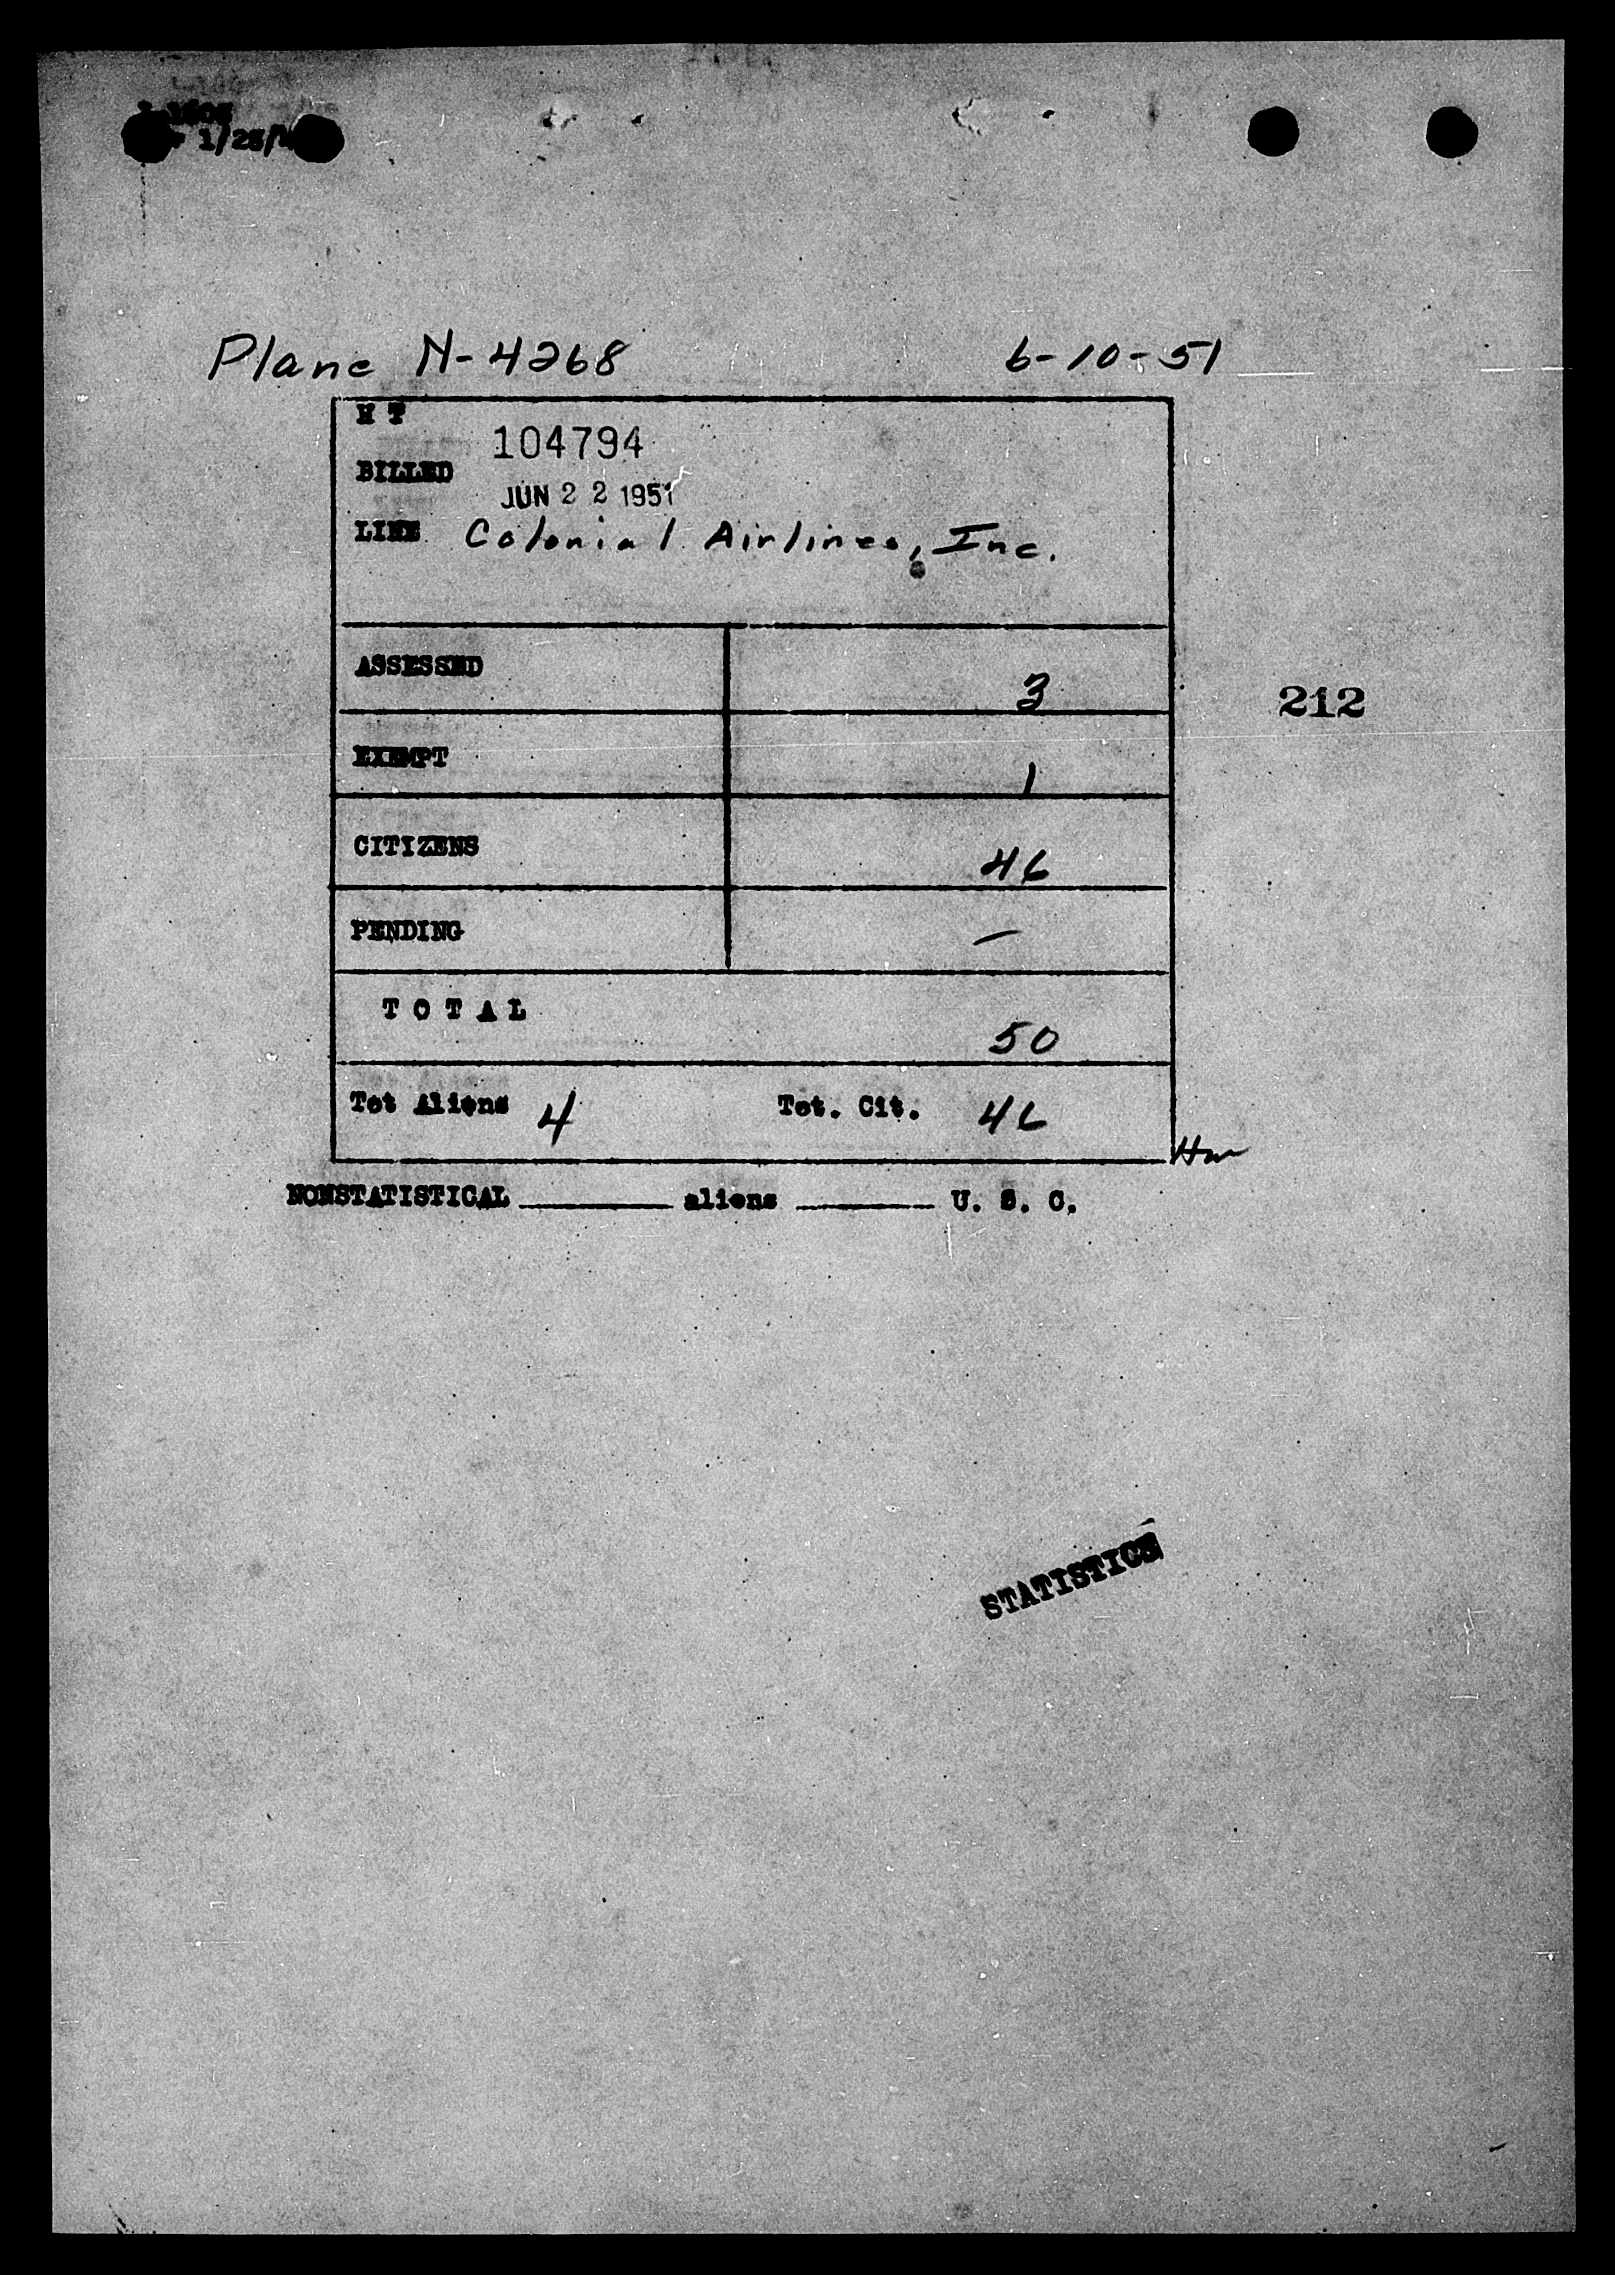 1/25/
Plane N-4268 6-10-51
H T 104794
BILLED JUN 22 1951
LINE Colonial Airlines, Inc.
ASSESSED 3
212
EXEMPT 1
CITIZENS 46
PENDING —
TOTAL 50
Tot Aliens 4 Tot. Cit. 46
NONSTATISTICAL ______ aliens ______ U. S. C.
STATISTICS